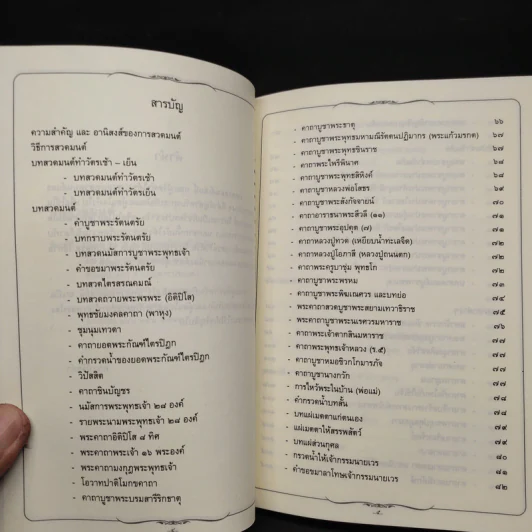 สารบัญ
ความสำคัญ และ อานิสงส์ของการสวดมนต์
วิธีการสวดมนต์
บทสวดมนต์ทำวัตรเช้า – เย็น
- บทสวดมนต์ทำวัตรเช้า
- บทสวดมนต์ทำวัตรเย็น
บทสวดมนต์
- คำบูชาพระรัตนตรัย
- บทกราบพระรัตนตรัย
- บทสวดนมัสการบูชาพระพุทธเจ้า
- คำขอขมาพระรัตนตรัย
- บทสวดไตรสรณคมณ์
- บทสวดถวายพรพระ (อิติปิโส)
- พุทธชัยมงคลคาถา (พาหุง)
- ชุมนุมเทวดา
- คาถายอดพระกัณฑ์ไตรปิฎก
- คำกรวดน้ำของยอดพระกัณฑ์ไตรปิฎก
- วิปัสสิต
- คาถาชินบัญชร
- นมัสการพระพุทธเจ้า ๒๘ องค์
- รายพระนามพระพุทธเจ้า ๒๘ องค์
- พระคาถาอิติปิโส ๘ ทิศ
- พระคาถาพระเจ้า ๑๖ พระองค์
- พระคาถามงกุฎพระพุทธเจ้า
- โอวาทปาติโมกขคาถา
- คาถาบูชาพระบรมสารีริกธาตุ
- คาถาบูชาพระธาตุ ๖๖
- คาถาบูชาพระพุทธมหามณีรัตนปฏิมากร (พระแก้วมรกต) ๖๗
- คาถาบูชาพระพุทธชินราช ๖๗
- คาถาพระไพรีพินาศ ๖๘
- คาถาบูชาพระพุทธสิหิงค์ ๖๘
- คาถาบูชาหลวงพ่อโสธร ๖๙
- คาถาบูชาพระสังกัจจายน์ ๗๐
- คาถาอาราธนาพระสิวลี (๑๑) ๗๑
- คาถาบูชาพระอุปคุต (๗) ๗๑
- คาถาหลวงปู่ทวด (เหยียบน้ำทะเลจืด) ๗๒
- คาถาหลวงปู่โอภาสี (หลวงปู่ถนนตก) ๗๒
- คาถาพระครูบาชุ่ม พุทธโก ๗๒
- คาถาบูชาพระพรหม ๗๓
- คาถาบูชาพระพิฆเณศวร และบทย่อ ๗๔
- พระคาถาสวดบูชาพระสยามเทวาธิราช ๗๕
- พระคาถาบูชาพระนเรศวรมหาราช ๗๖
- คาถาพระเจ้าตากสินมหาราช ๗๗
- คาถาพระพุทธเจ้าหลวง (ร.๕) ๗๗
- คาถาบูชาหมอชีวกโกมารภัจ ๗๗
- คาถาบูชานางกวัก ๗๗
- การไหว้พระในบ้าน (พ่อแม่) ๗๘
- คำกรวดน้ำบทสั้น ๗๘
- บทแผ่เมตตาแก่ตนเอง ๗๘
- แผ่เมตตาให้สรรพสัตว์ ๗๙
- บทแผ่ส่วนกุศล ๗๙
- กรวดน้ำให้เจ้ากรรมนายเวร ๘๐
- คำขอขมาลาโทษเจ้ากรรมนายเวร ๘๑
๘๒